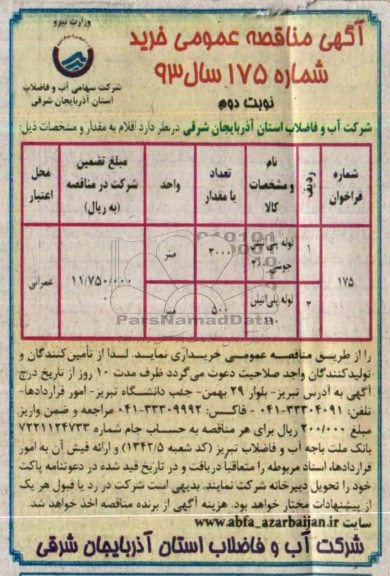 وزارت نیرو
آگهی مناقصه عمومی خرید
شماره ۱۷۵ سال ۹۳
نوبت دوم
شرکت سهامی آب و فاضلاب
استان آذربایجان شرقی
شرکت آب و فاضلاب استان آذربایجان شرقی درنظر دارد اقلام به مقدار و مشخصات ذیل:
شماره فراخوان | ردیف | نام و مشخصات کالا | تعداد یا مقدار | واحد | مبلغ تضمین شرکت در مناقصه (به ریال) | محل اعتبار
۱۷۵ | ۱ | لوله پلی اتیلن جوشی | متر | ۱۱/۷۵۰/۰۰۰ | عمرانی
۲ | لوله پلی‌اتیلن | ۵۰۰ | متر
ParsNamadData
را از طریق مناقصه عمومی خریداری نماید. لذا از تأمین‌کنندگان و
تولیدکنندگان واجد صلاحیت دعوت می‌گردد ظرف مدت ۱۰ روز از تاریخ درج
آگهی به آدرس تبریز- بلوار ۲۹ بهمن- جنب دانشگاه تبریز- امور قراردادها-
تلفن: ۳۳۳۰۴۰۹۱-۰۴۱ - فاکس: ۳۳۳۰۹۹۹۲-۰۴۱ مراجعه و ضمن واریز
مبلغ ۲۰۰/۰۰۰ ریال برای هر مناقصه به حساب جام شماره ۷۲۲۱۱۲۴۷۳۳
بانک ملت باجه آب و فاضلاب تبریز (کد شعبه ۱۳۴۲/۵) و ارائه فیش آن به امور
قراردادها، اسناد مربوطه را متعاقبا دریافت و در تاریخ قید شده در دعوتنامه پاکت
خود را تحویل دبیرخانه شرکت نمایند. بدیهی است شرکت در رد یا قبول هر یک
از پیشنهادات مختار خواهد بود. هزینه آگهی از برنده مناقصه اخذ خواهد شد.
سایت www.abfa_azarbaijan.ir
شرکت آب و فاضلاب استان آذربایجان شرقی